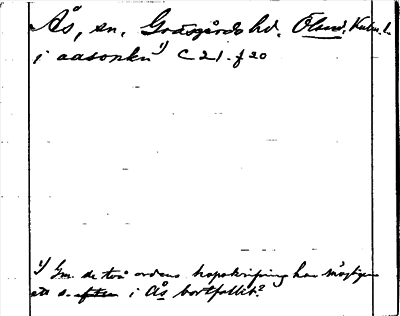 Ås, sn, Gräsgårds hd. Öland, Kalm. l.
i aasonku ¹) C 21. f 20
¹) Gm. de två ordens hopskrifning har möjligen
ett s efter i Ås bortfallit?